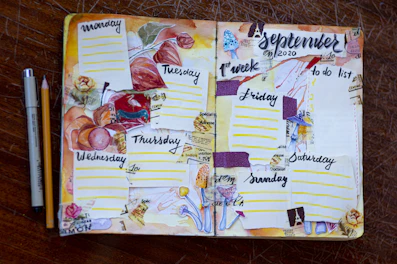 monday
Tuesday
Thursday
Wednesday
September
2020
1st week
to do list
Friday
Saturday
Sunday